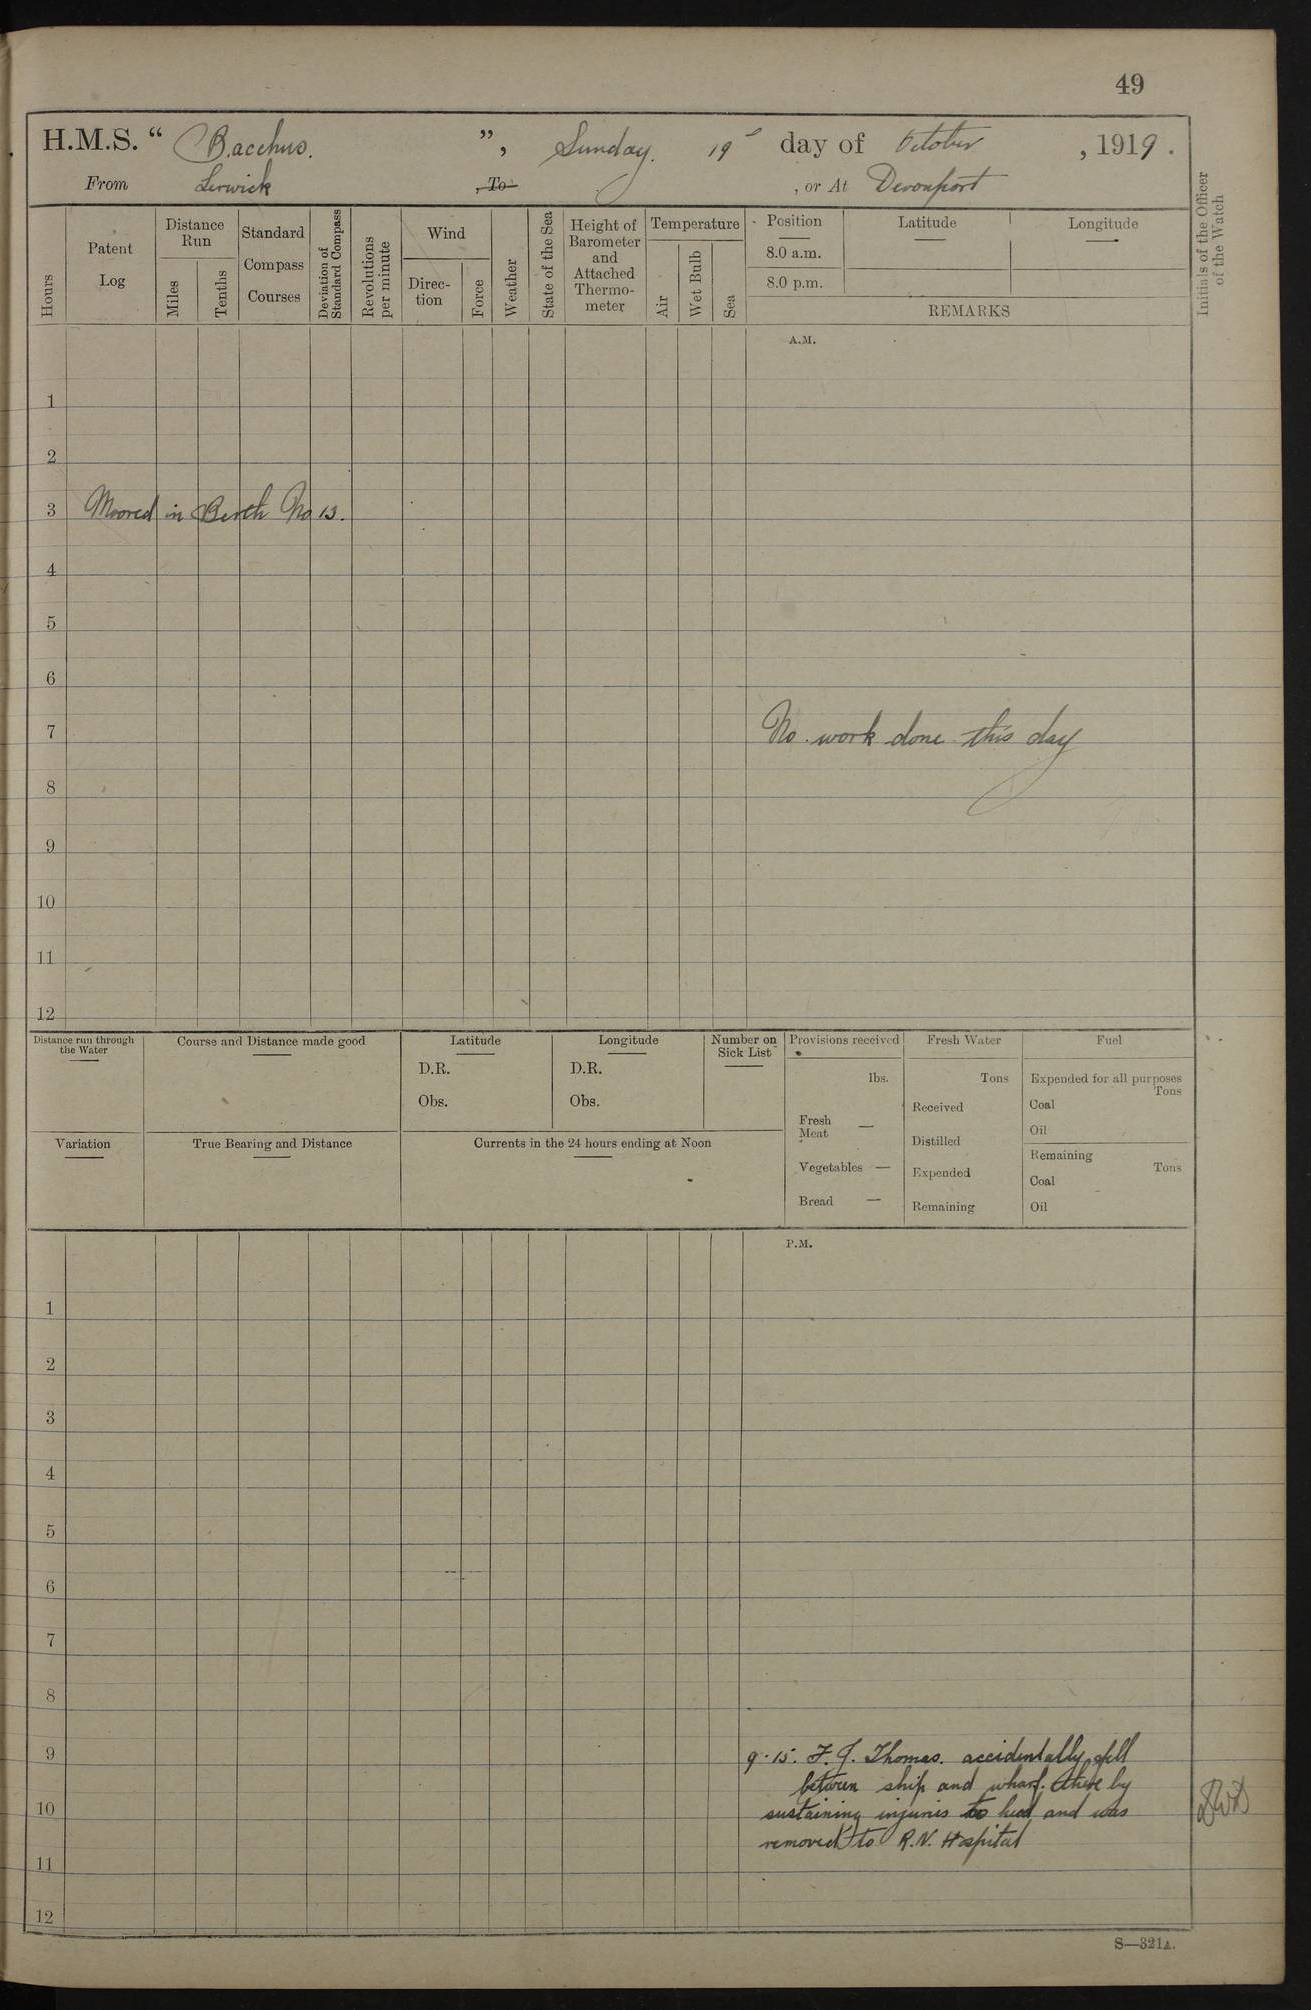 49
H.M.S. “ Bacchus. ”, Sunday. 19 day of October , 1919.
From Lerwick , To , or At Devonport
Hours
Patent Log
Distance Run
Miles
Tenths
Standard Compass Courses
Deviation of Standard Compass
Revolutions per minute
Wind
Direc-tion
Force
Weather
State of the Sea
Height of Barometer and Attached Thermo-meter
Temperature
Air
Wet Bulb
Sea
Position
8.0 a.m.
8.0 p.m.
Latitude
Longitude
REMARKS
Initials of the Officer of the Watch
A.M.
1
2
3 Moored in Berth No 13.
4
5
6
7 No work done this day
8
9
10
11
12
Distance run through the Water
Course and Distance made good
Latitude
D.R.
Obs.
Longitude
D.R.
Obs.
Number on Sick List
Provisions received
lbs.
Fresh Meat —
Vegetables —
Bread —
Fresh Water
Tons
Received
Distilled
Expended
Remaining
Fuel
Expended for all purposes
Tons
Coal
Oil
Remaining
Tons
Coal
Oil
Variation
True Bearing and Distance
Currents in the 24 hours ending at Noon
P.M.
1
2
3
4
5
6
7
8
9 9.15. F. J. Thomas. accidentally fell
between ship and wharf. there by
10 sustaining injuries to head and was
removed to R.N. Hospital
11
12
S—321A.